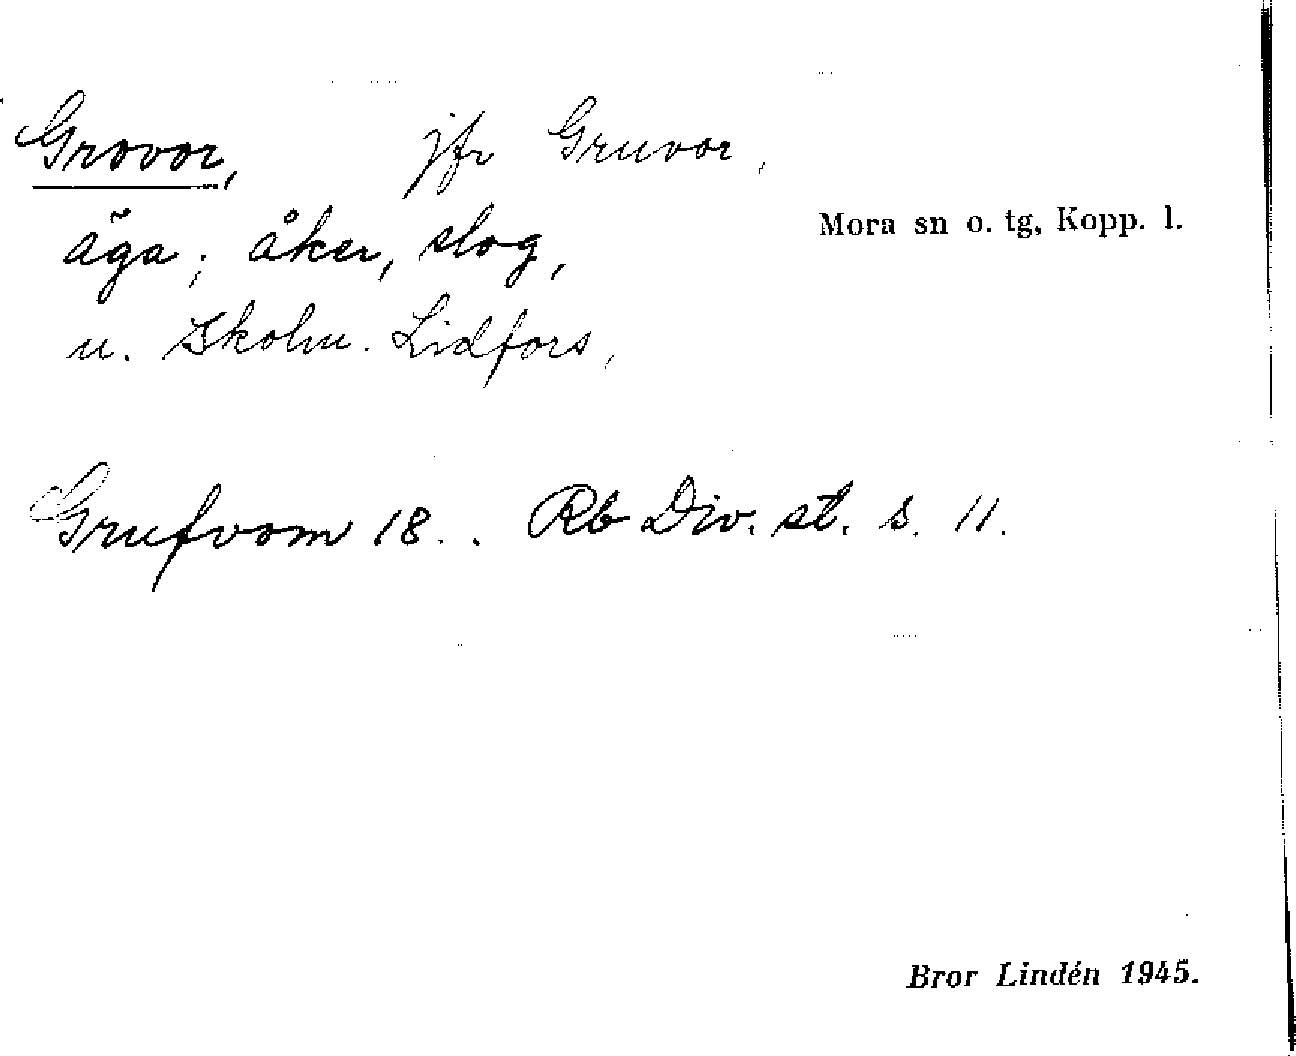 Grovor, jfr Gruvor,
Mora sn o. tg, Kopp. l.
äga; åker, slog,
u. Skolm. Lidfors,
Grufvorn 18.. Rb Div. st. s. 11.
Bror Lindén 1945.